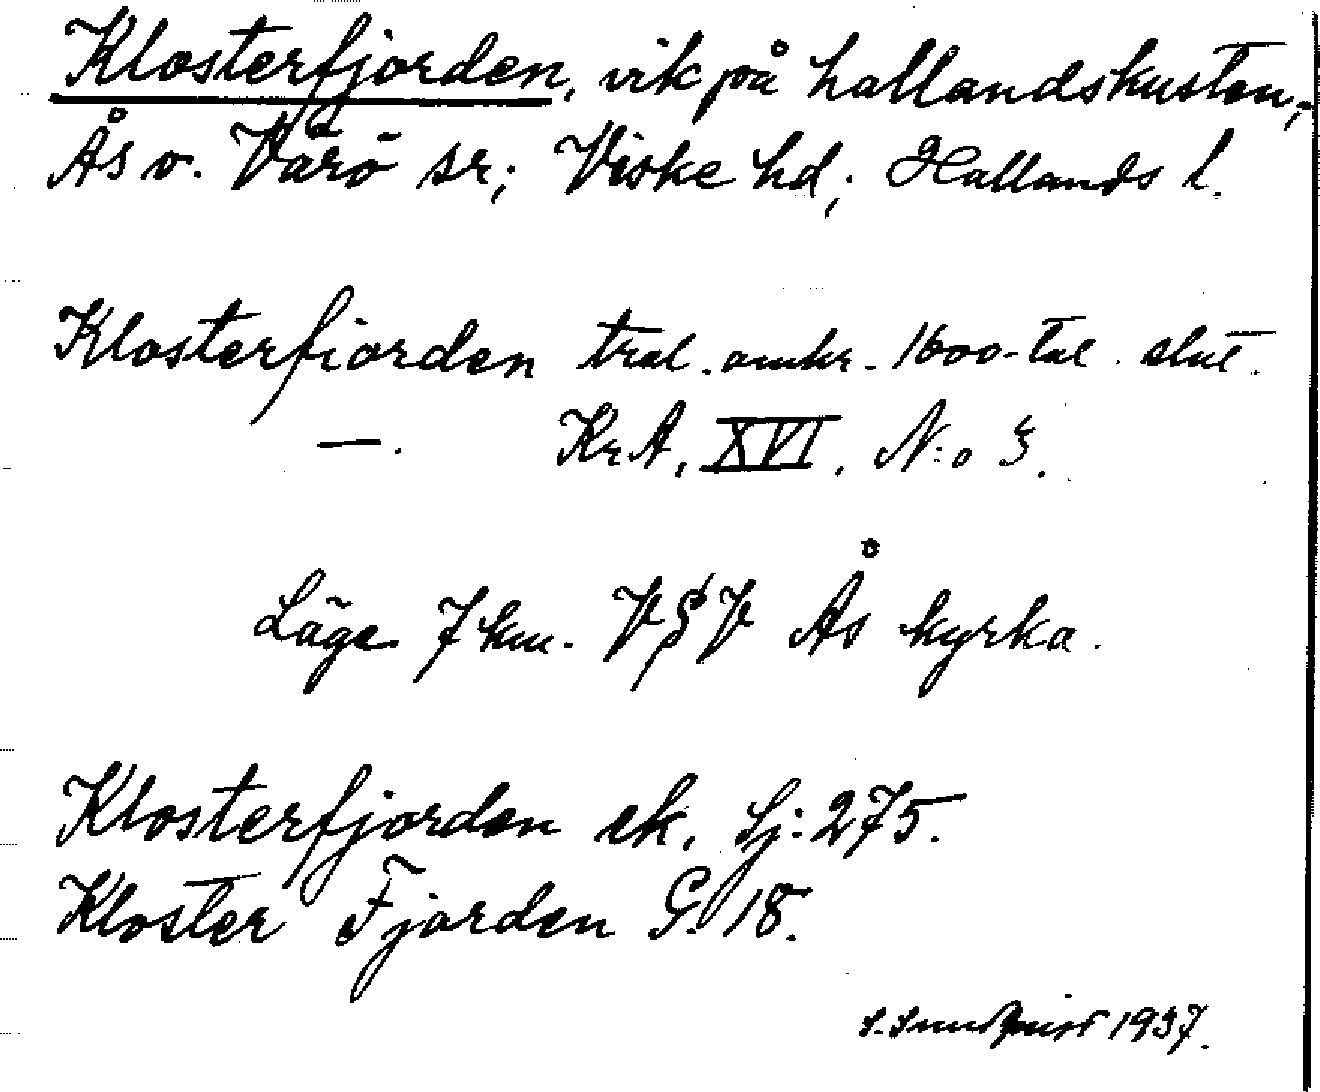 Klosterfjorden, vik på hallandskusten,
Ås o. Värö sr; Viske hd; Hallands l.
Klosterfiorden trol. omkr. 1600-tal. slut.
—. KrA, XVI, N:o 3.
Läge 7 km. V§V Ås kyrka.
Klosterfjorden ek. Sj: 275.
Kloster Fjorden G. 18.
1937.